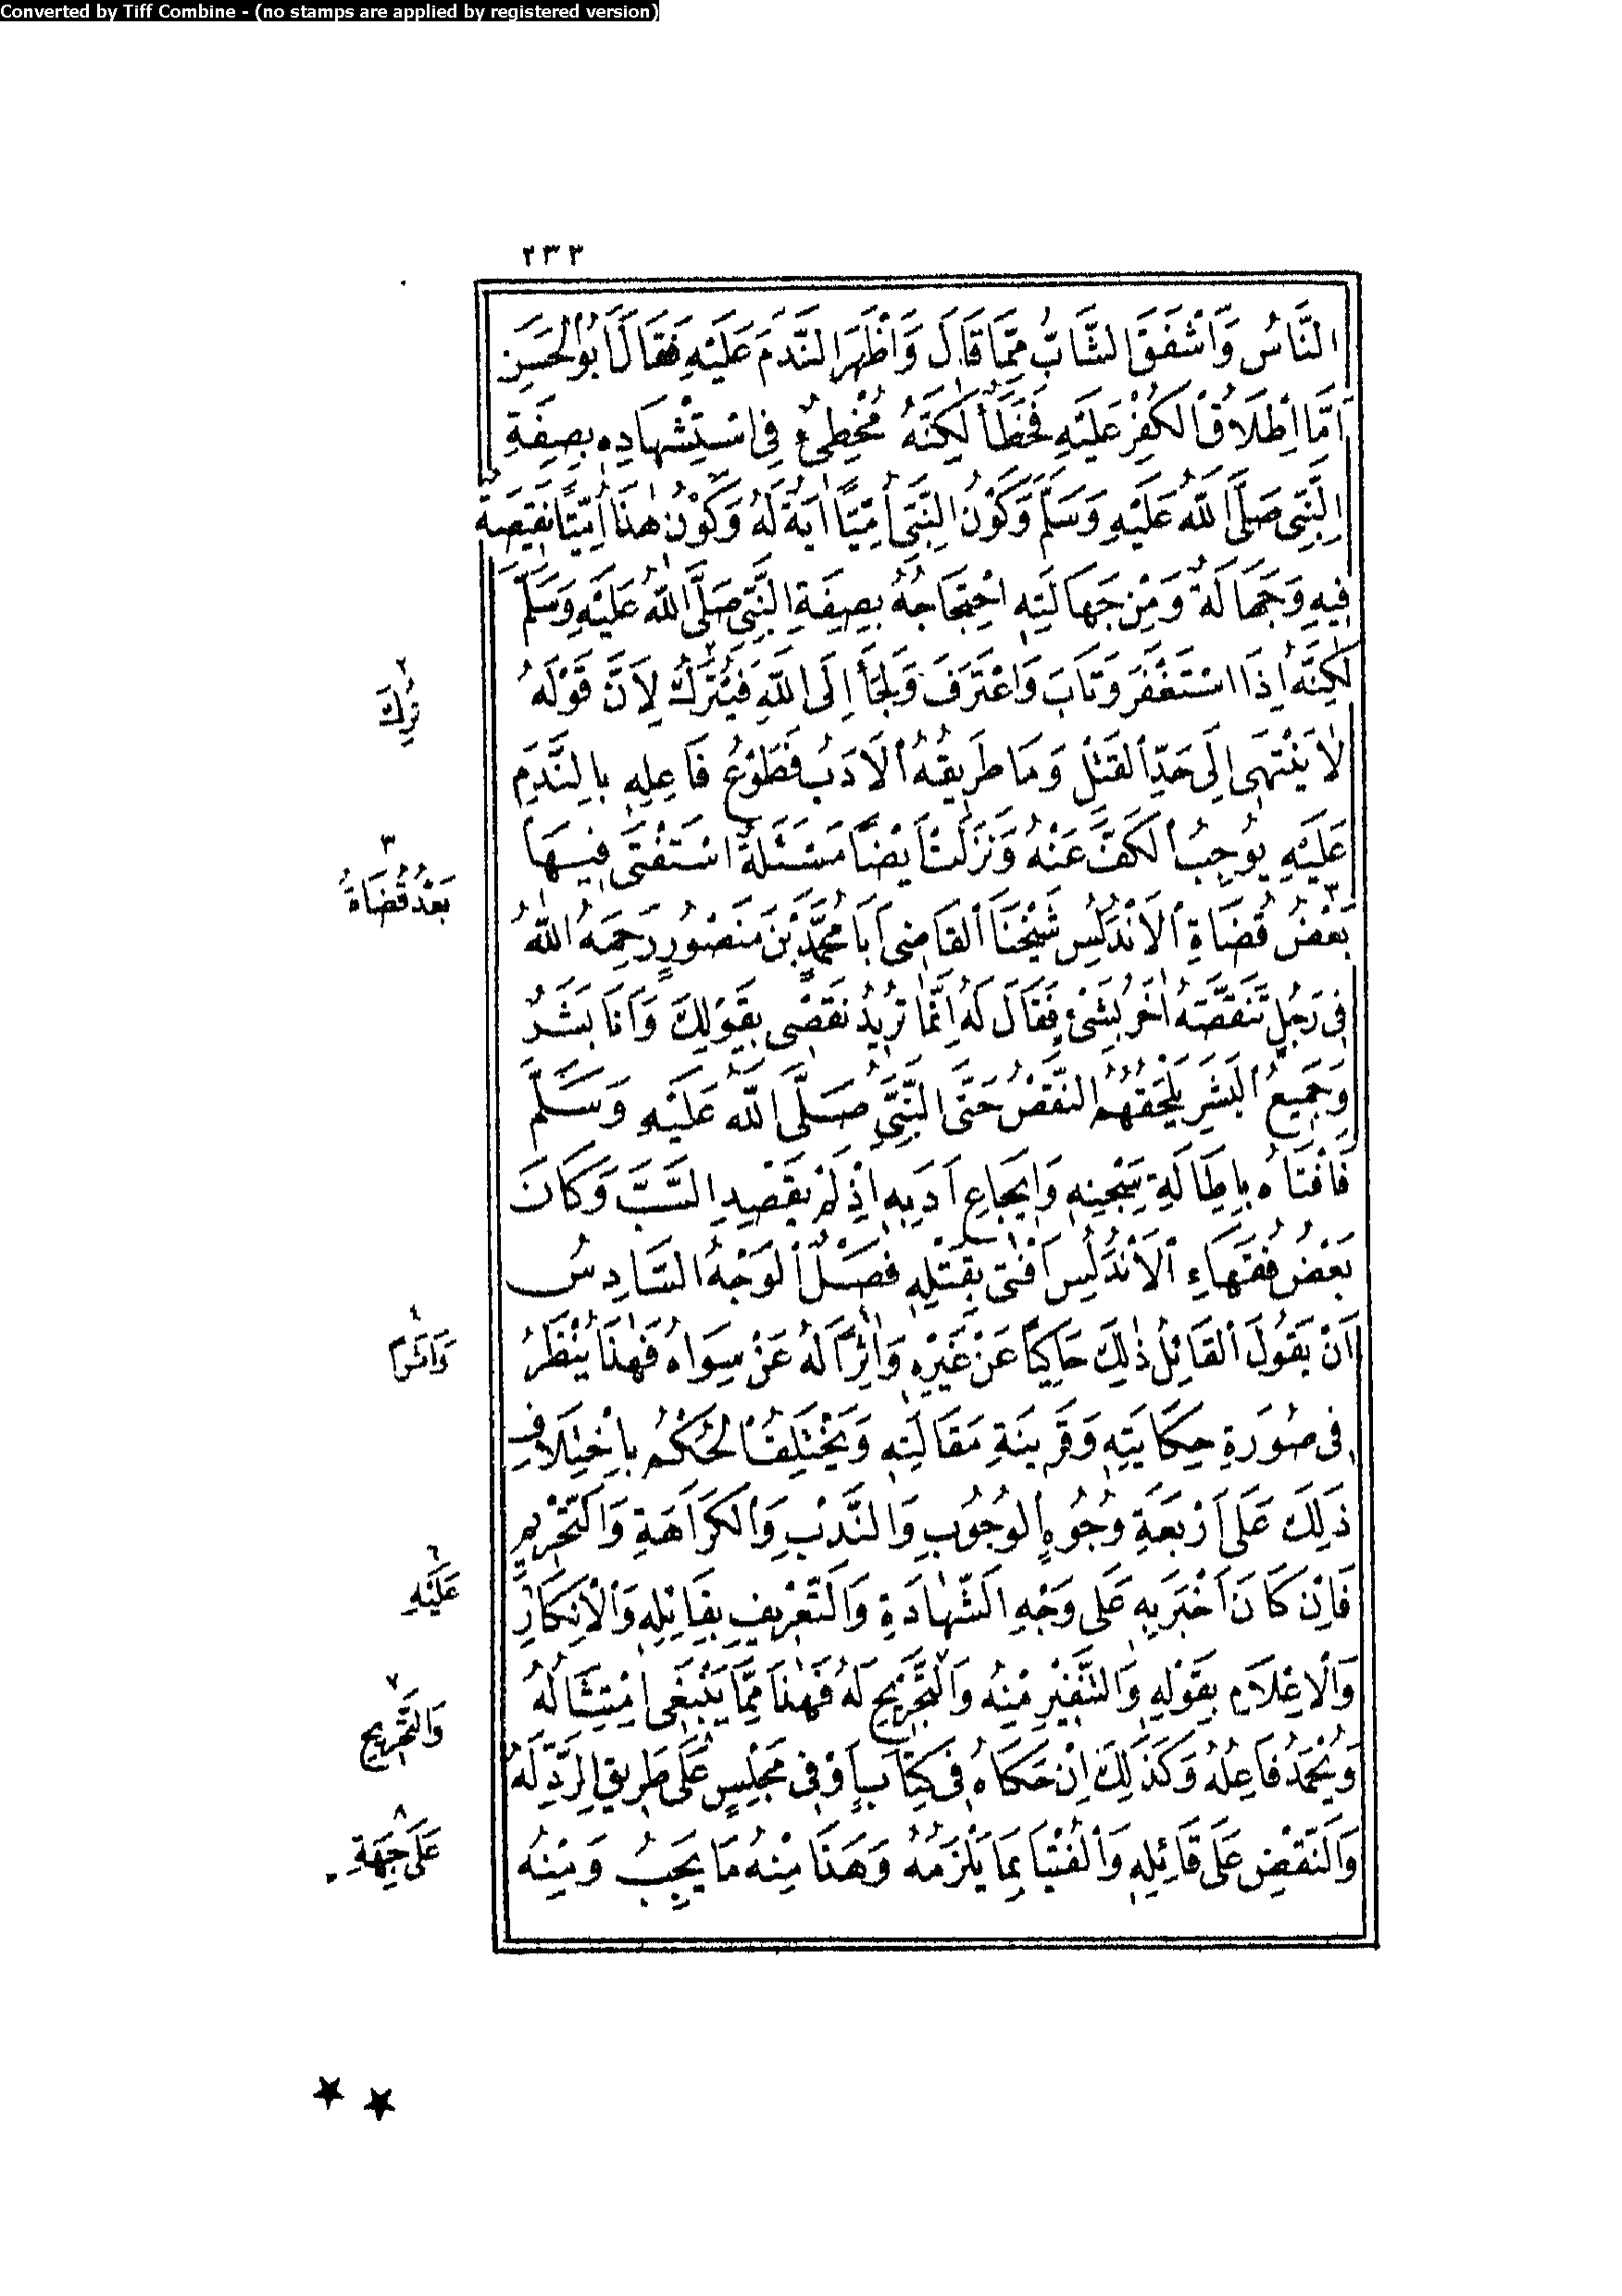 Converted by Tiff Combine - (no stamps are applied by registered version)
٢٣٣
النَّاسُ وَأَشْفَقَ الشَّابُّ مِمَّا قَالَ وَأَظْهَرَ النَّدَمَ عَلَيْهِ فَقَالَ أَبُو الْحَسَنِ
أَمَّا إِطْلَاقُ الْكُفْرِ عَلَيْهِ فَخَطَأٌ لٰكِنَّهُ مُخْطِئٌ فِى اسْتِشْهَادِهِ بِصِفَةِ
النَّبِىِّ صَلَّى اللّٰهُ عَلَيْهِ وَسَلَّمَ وَكَوْنُ النَّبِىِّ أُمِّيًّا اٰيَةٌ لَهُ وَكَوْنُ هٰذَا أُمِّيًّا نَقِيصَةٌ
فِيهِ وَجَهَالَةٌ وَمِنْ جَهَالَتِهِ احْتِجَاجُهُ بِصِفَةِ النَّبِىِّ صَلَّى اللّٰهُ عَلَيْهِ وَسَلَّمَ
لٰكِنَّهُ إِذَا اسْتَغْفَرَ وَتَابَ وَاعْتَرَفَ وَلَجَأَ إِلَى اللّٰهِ فَيُتْرَكُ لِأَنَّ قَوْلَهُ
لَا يَنْتَهِى إِلَى حَدِّ الْقَتْلِ وَمَا طَرِيقُهُ الْأَدَبُ فَطَوْعُ فَاعِلِهِ بِالنَّدَمِ
عَلَيْهِ يُوجِبُ الْكَفَّ عَنْهُ وَنَزَلَتْ أَيْضًا مَسْئَلَةٌ اسْتَفْتَى فِيهَا
بَعْضُ قُضَاةِ الْأَنْدَلُسِ شَيْخَنَا الْقَاضِىَ أَبَا مُحَمَّدِ بْنَ مَنْصُورٍ رَحِمَهُ اللّٰهُ
فِى رَجُلٍ تَنَقَّصَهُ اٰخَرُ بِشَىْءٍ فَقَالَ لَهُ إِنَّمَا تُرِيدُ نَقْصِى بِقَوْلِكَ وَأَنَا بَشَرٌ
وَجَمِيعُ الْبَشَرِ يَلْحَقُهُمُ النَّقْصُ حَتَّى النَّبِىُّ صَلَّى اللّٰهُ عَلَيْهِ وَسَلَّمَ
فَأَفْتَاهُ بِإِطَالَةِ سَجْنِهِ وَإِيجَاعِ أَدَبِهِ إِذْ لَمْ يَقْصِدِ السَّبَّ وَكَانَ
بَعْضُ فُقَهَاءِ الْأَنْدَلُسِ أَفْتَى بِقَتْلِهِ فَصْلٌ الْوَجْهُ السَّادِسُ
أَنْ يَقُولَ الْقَائِلُ ذٰلِكَ حَاكِيًا عَنْ غَيْرِهِ وَاٰثِرًا لَهُ عَنْ سِوَاهُ فَهٰذَا يُنْظَرُ
فِى صُورَةِ حِكَايَتِهِ وَقَرِينَةِ مَقَالَتِهِ وَيَخْتَلِفُ الْحُكْمُ بِاخْتِلَافِ
ذٰلِكَ عَلَى أَرْبَعَةِ وُجُوهٍ الْوُجُوبِ وَالنَّدْبِ وَالْكَرَاهَةِ وَالتَّحْرِيمِ
فَإِنْ كَانَ أَخْبَرَ بِهِ عَلَى وَجْهِ الشَّهَادَةِ وَالتَّعْرِيفِ بِقَائِلِهِ وَالْإِنْكَارِ
وَالْإِعْلَامِ بِقَوْلِهِ وَالتَّنْفِيرِ مِنْهُ وَالتَّجْرِيحِ لَهُ فَهٰذَا مِمَّا يَنْبَغِى امْتِثَالُهُ
وَيُحْمَدُ فَاعِلُهُ وَكَذٰلِكَ إِنْ حَكَاهُ فِى كِتَابٍ أَوْ فِى مَجْلِسٍ عَلَى طَرِيقِ الرَّدِّ لَهُ
وَالنَّقْضِ عَلَى قَائِلِهِ وَالْفُتْيَا بِمَا يَلْزَمُهُ وَهٰذَا مِنْهُ مَا يَجِبُ وَمِنْهُ
٢
تُرِكَ
٣
بَعْدُ قُضَاةُ
٤
٦
عَلَيْهِ
٧
وَالتَّجْرِيحِ
٨
عَلَى جِهَةِ